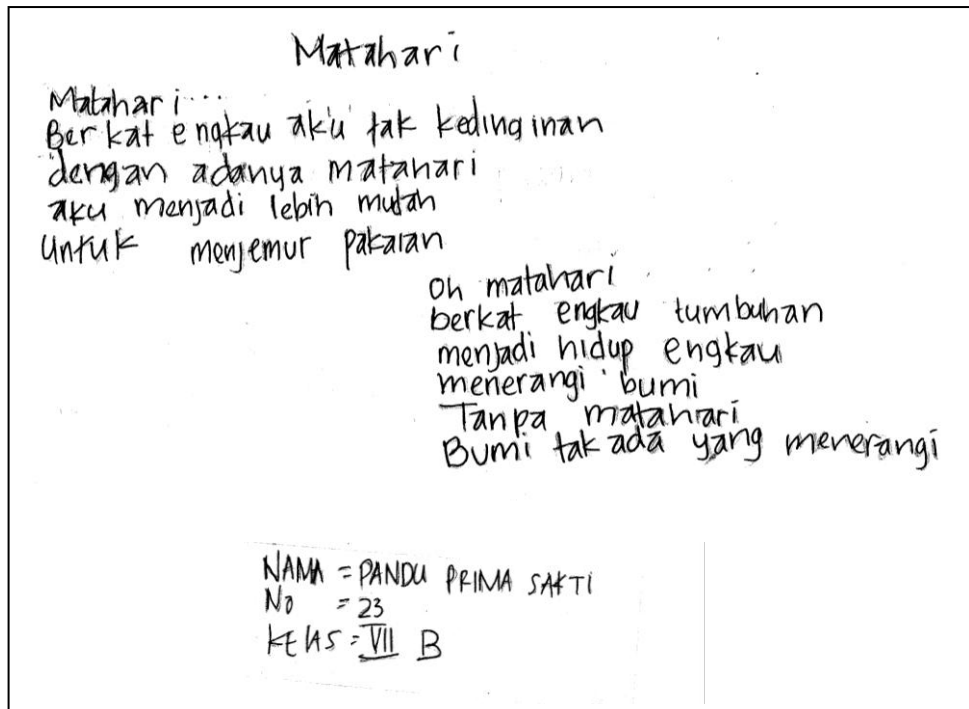 Matahari
Matahari...
Berkat engkau aku tak kedinginan
dengan adanya matahari
aku menjadi lebih mudah
Untuk menjemur pakaian
Oh matahari
berkat engkau tumbuhan
menjadi hidup engkau
menerangi bumi
Tanpa matahari
Bumi tak ada yang menerangi
NAMA = PANDU PRIMA SAKTI
No = 23
KELAS = VII B